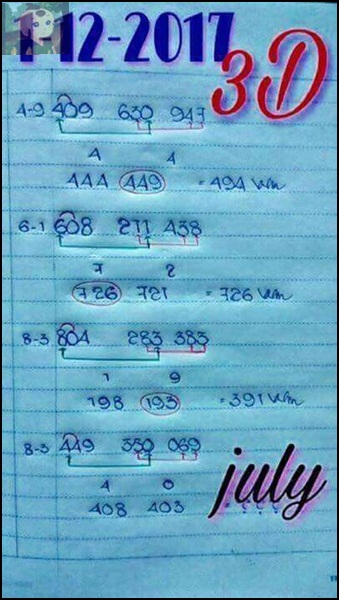 1-12-2017
3D
4-9 409 630 947
4 4
444 449 = 494 Wm
6-1 608 211 438
7 2
726 721 = 726 Wm
8-3 804 283 383
1 9
198 193 = 391 Wm
8-3 449 330 069
4 0
408 403
july